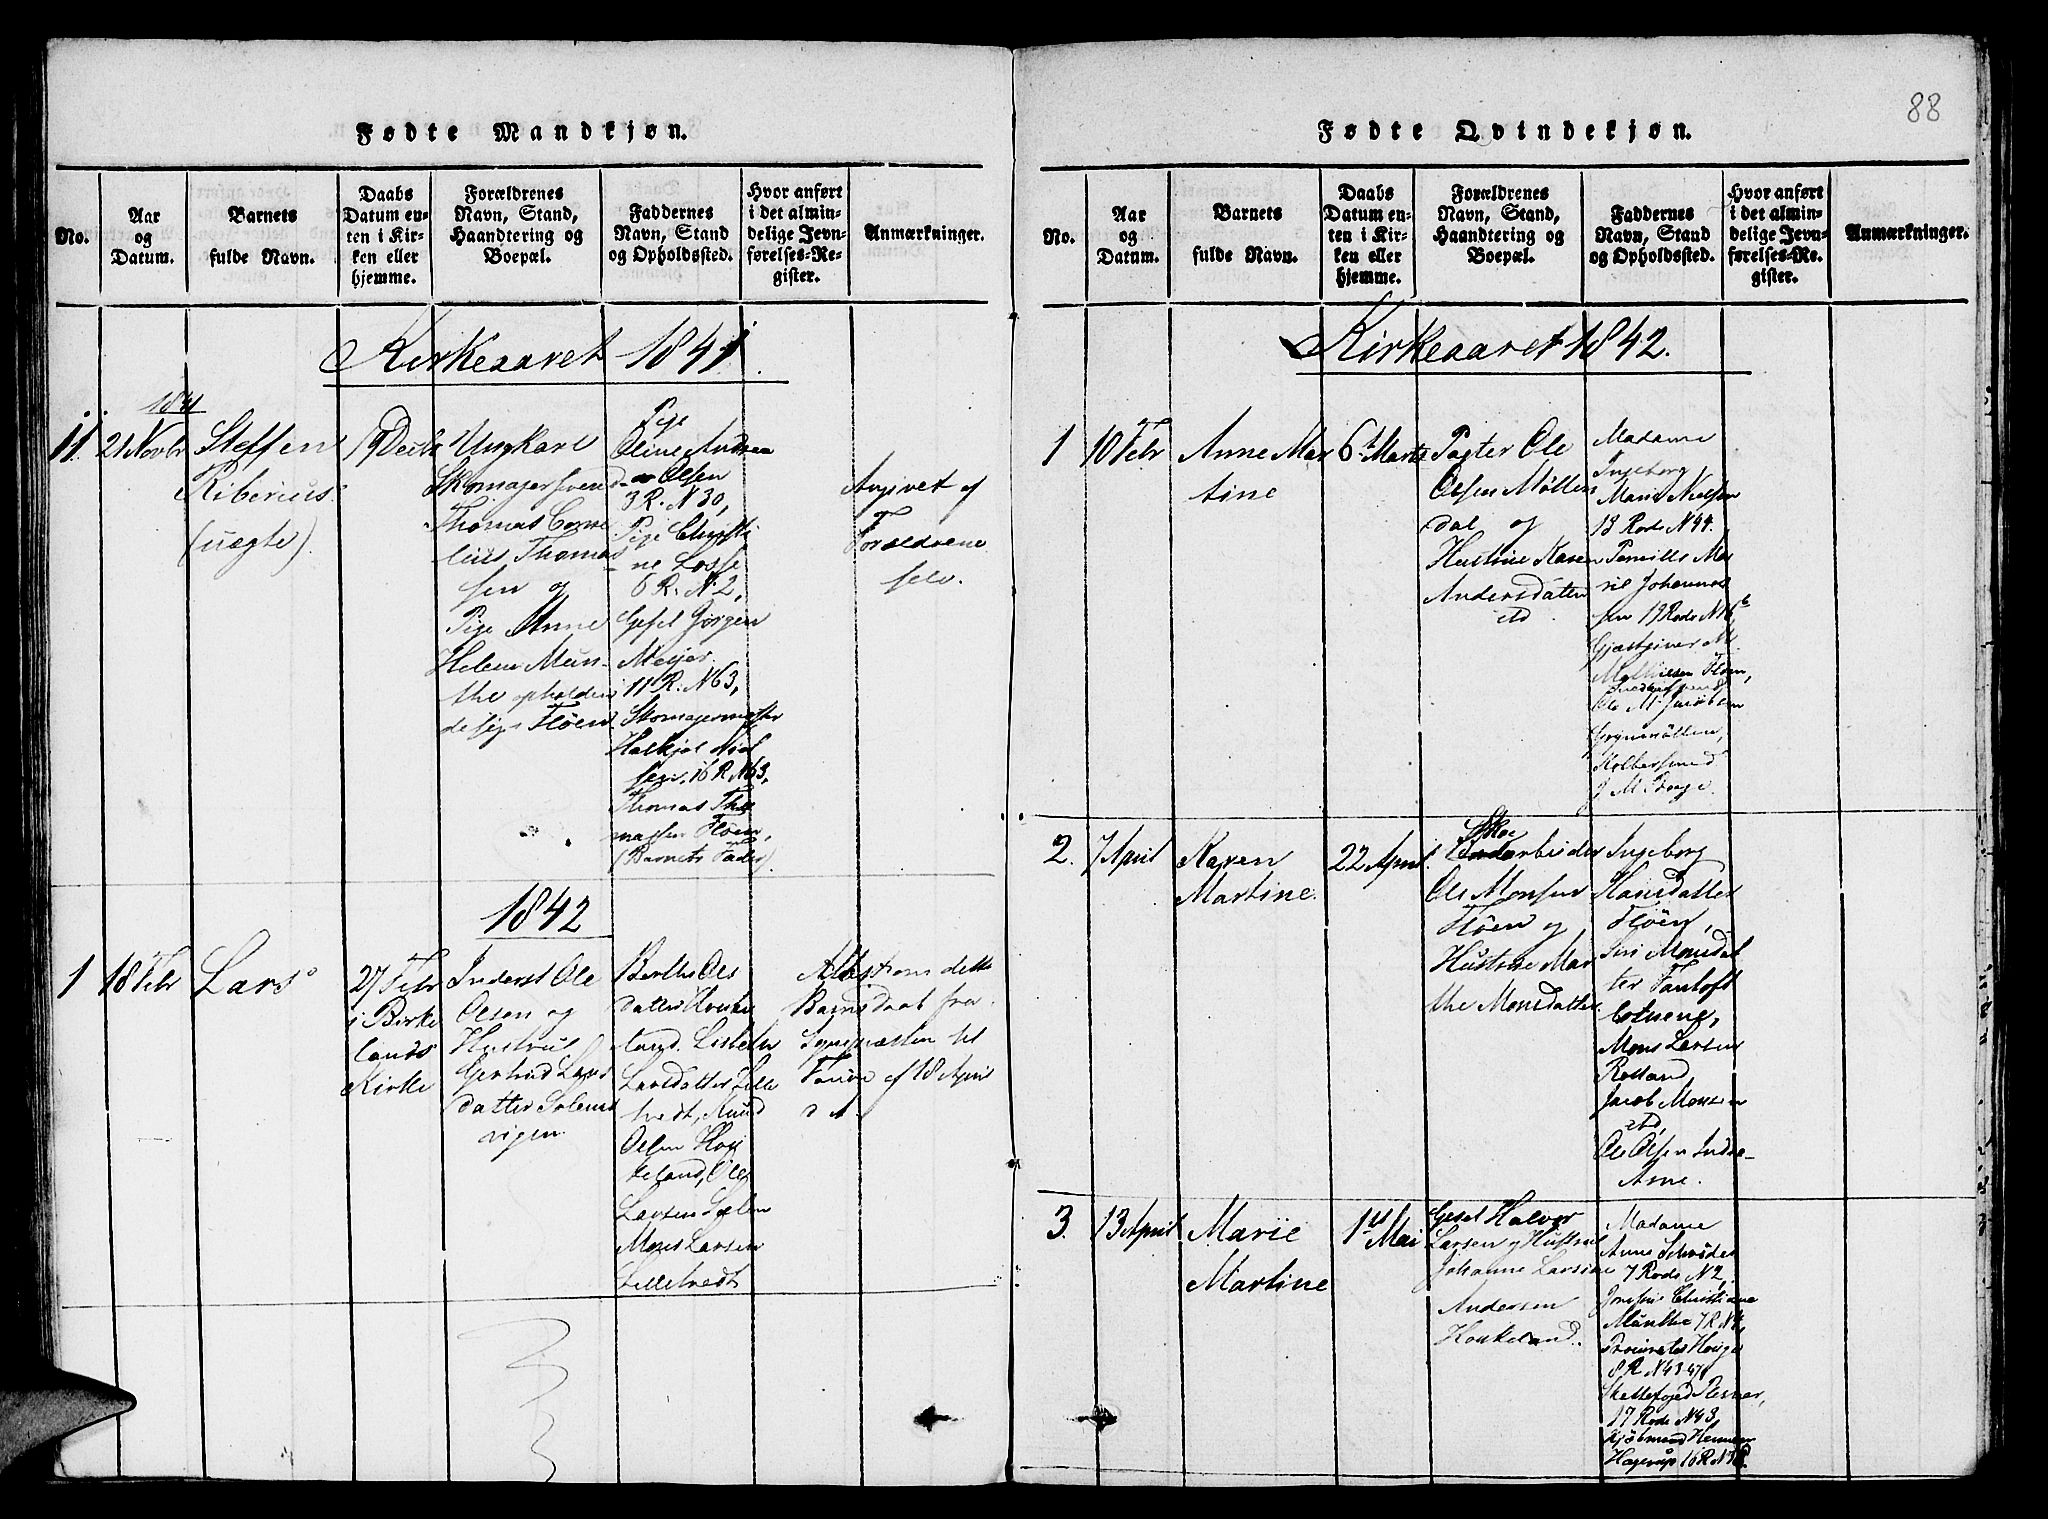 88
Fødte Mandkjøn.
No.
Aar
og
Datum.
Barnets
fulde Navn.
Daabs
Datum en-
ten i Kir-
ken eller
hjemme.
Forældrenes
Navn, Stand,
Haandtering og
Boepæl.
Faddernes
Navn, Stand
og Opholdssted.
Hvor anført
i det almin-
delige Jevn-
førelses-Re-
gister.
Anmærkninger.
Kirkeaaret 1841.
1841
11.
21 Novbr
Steffen
Riberius
(uægte).
19 Decbr
Ungkarl
Skomagersvend
Thomas Corne
lius Thomas
sen og
Pige Anne
Helene Mun-
the opholden
de sig i Fløen
Pige
Oline Andrea
Olsen
3 R. N 30,
Pige Christi
ne Losse
6 R. N 2,
Gesel Jørgen
Meyer
11 R. N 63,
Skomagermester
sen, 16 R. N 63,
Thomas Tho
massen Fløen,
(Barnets Fader).
Angivet af
Forældrene
selv.
1842
1
18 Febr
Lars
27 Febr
i Birke
lands
Kirke
Inderst Ole
Olsen og
Hustrue
Gertrud Lars
datter Solems
vigen
Berthe Ols
datter Houke
land. Lisbeth
Larsdatter Lille
tvedt, Knud
Olsen Hou
keland, Ole
Larsen
Mons Larsen
Lilletvedt
Attest om dette
Barns Daab fra
Sognepræsten til
Fane af 18 April
d A.
Fødte Qvindekjøn.
No.
Aar
og
Datum.
Barnets
fulde Navn.
Daabs
Datum en-
ten i Kir-
ken eller
hjemme.
Forældrenes
Navn, Stand,
Haandtering og
Boepæl.
Faddernes
Navn, Stand
og Opholdssted.
Hvor anført
i det almin-
delige Jevn-
førelses-Re-
gister.
Anmærkninger.
Kirkeaaret 1842.
1
10 Febr
Anne Mar
tine
6te Marts
Pagter Ole
Olsen Møllen
dal og
Hustrue Karen
Andersdatter
ibd.
Madame
Ingeborg
Marie Nielsen
13 Rode N 44.
Pernille Ma
rie Johannes
sen 19 Rode N 16 b
Gjæstgiver M.
Mathiesen Fløen,
Ole M. Jacobsen
Grynmøllen,
J. M. Borge.
2.
7 April
Karen
Martine.
22 April.
Skoe
arbeider
Ole Monsen
Fløen og
Hustrue Mar
the Monsdatter
Ingeborg
Hansdatter
Fløen,
Siri Monsdat
ter Fantoft
Mons Larsen
Rolland,
Jacob Monsen
ibd,
Ole Olsen Indre-
Arne.
3.
13 April
Marie
Martine
1ste Mai
Gesel Halvor
Larsen og Hustrue
Johanne Larsine
Andersen
Houkeland.
Madame
Anne Schrøder
7 Rode N 2,
Christiane
Munthe 7 R N 4,
8 R N 43-47,
17 Rode N 43,
Kjøbmand Herman
Hagerup 16 R N